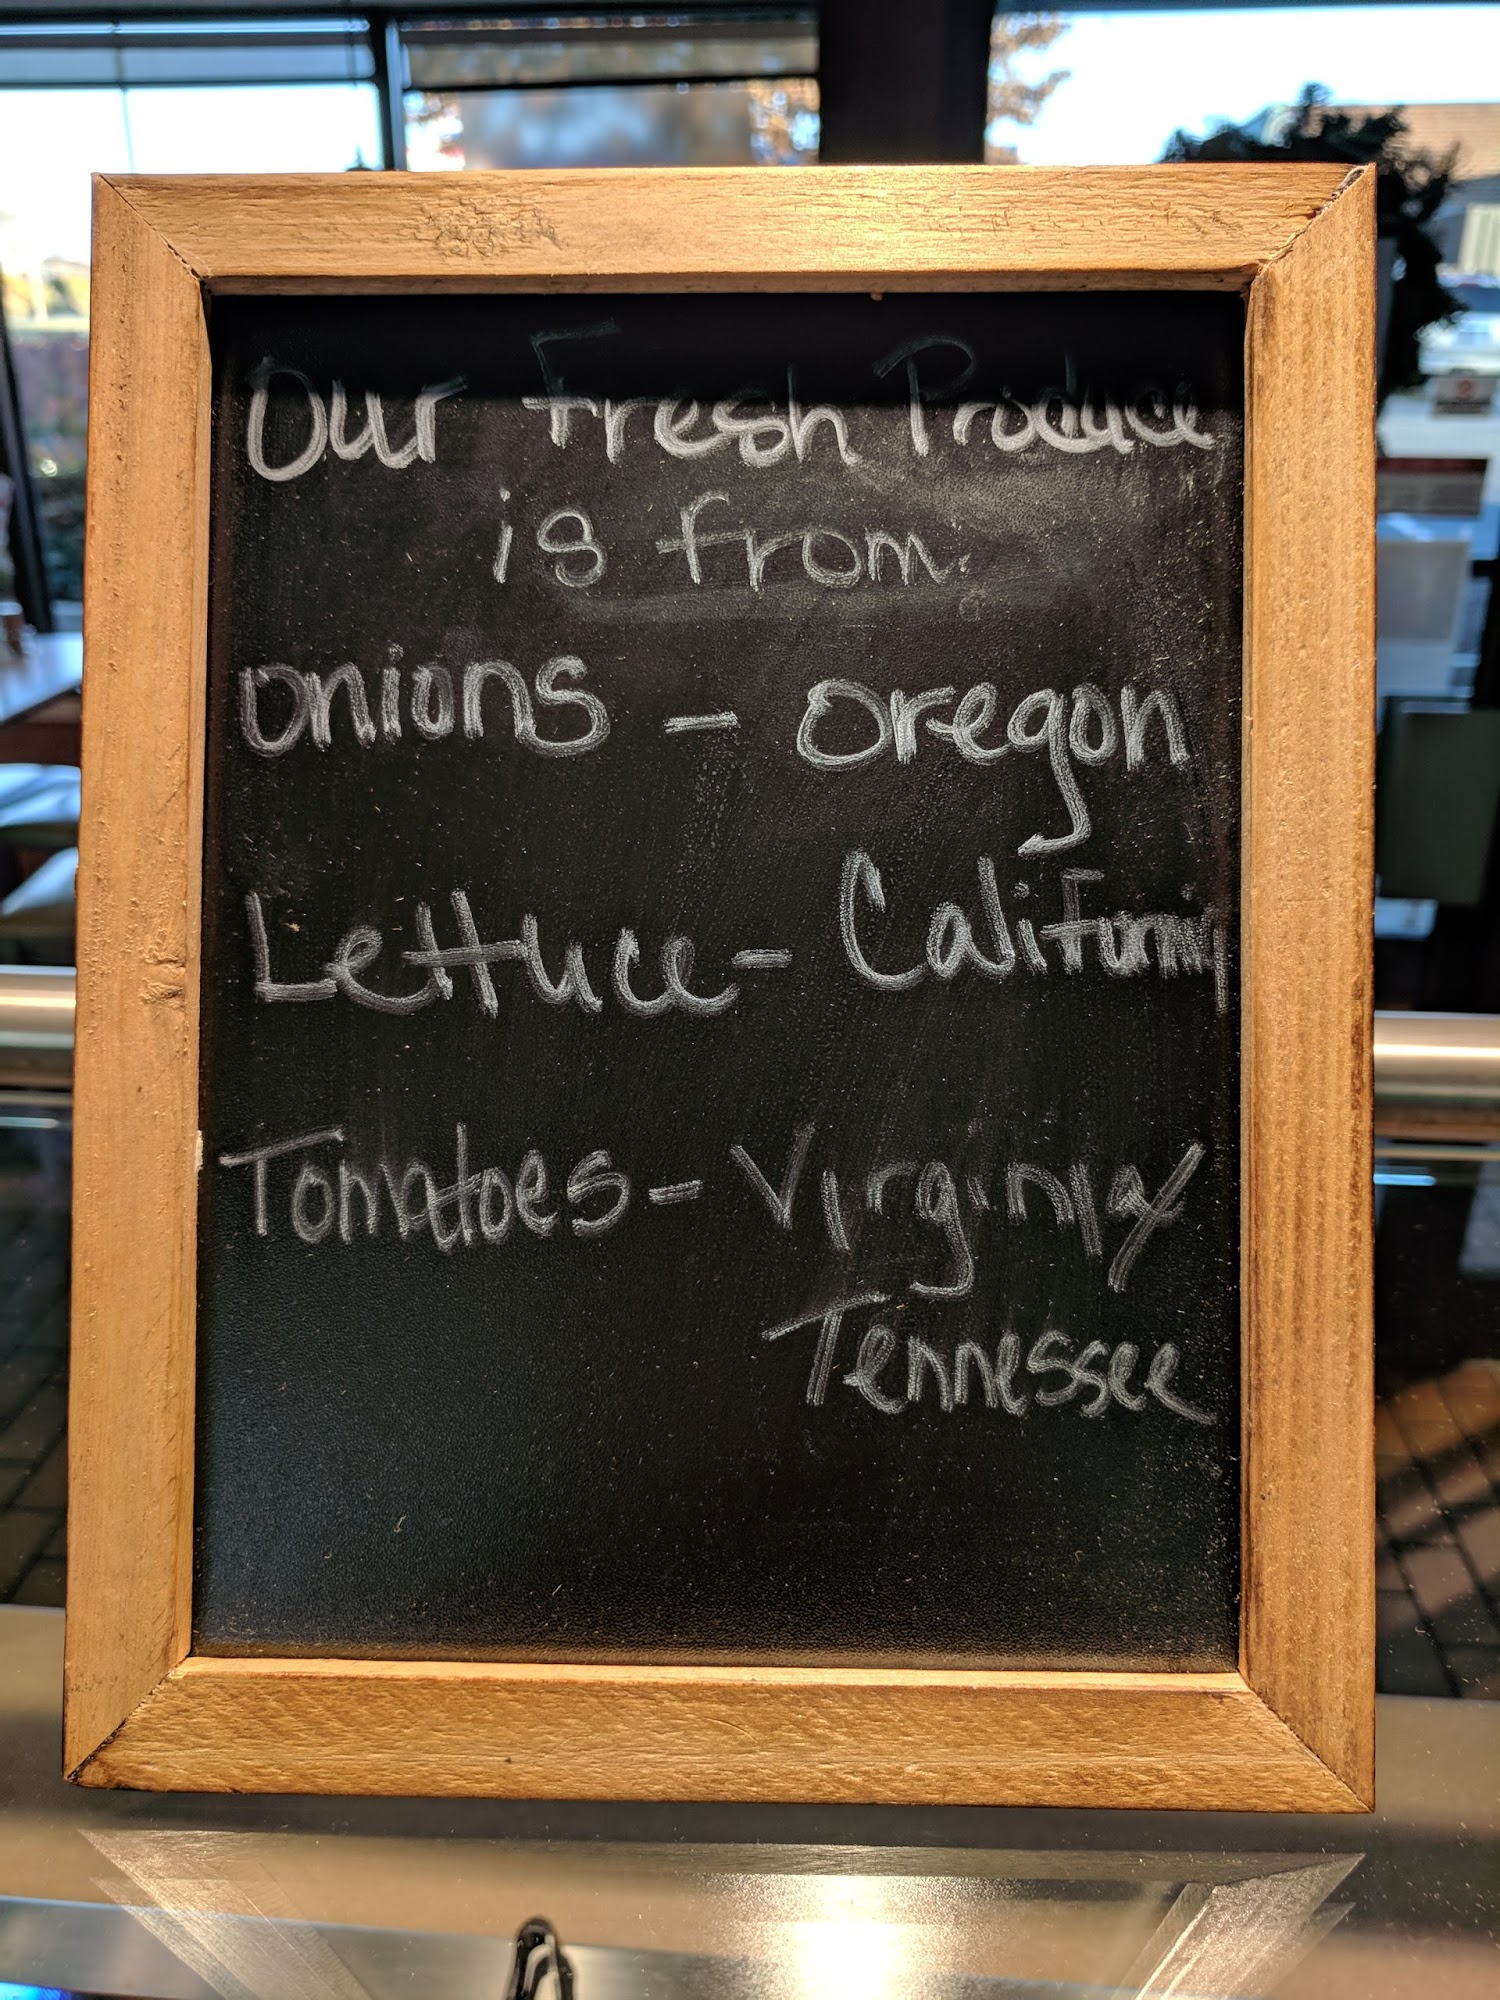 Our Fresh Produce
is from:
onions - oregon
Lettuce - California
Tomatoes - Virginia/
Tennessee